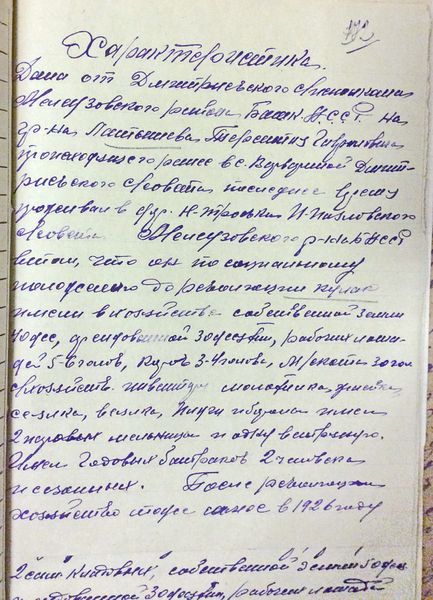 172
Характеристика.
Дана от Дмитриевского с/исполкома
Мелеузовского района Баш. АССР. на
гр-на Лаптышева Терентия Гавриловича
происходящего ранее в с. Варварино Дмит-
риевского с/совета последнее время
проживал в дер. Н-Троевка И-
с/совета Мелеузовского р-на БАССР
в том, что он по социальному
положению до революции кулак
имел в хозяйстве собственной земли
40дес, арендованной 30десятин, рабочих лоша-
дей 5-6голов, коров 3-4головы, М/скота 30гол
сельхозяйств. инвентарь молотилка, веялка,
сеялка, плуги и бороны имел
2 паровых мельницы и одну ветряную.
Имел Годовых батраков 2 человека
и сезонных. После революции
хозяйство тоже самое в 1926 году
собственной земли 5 десят
арендованной 30десятин, рабочих лошадей